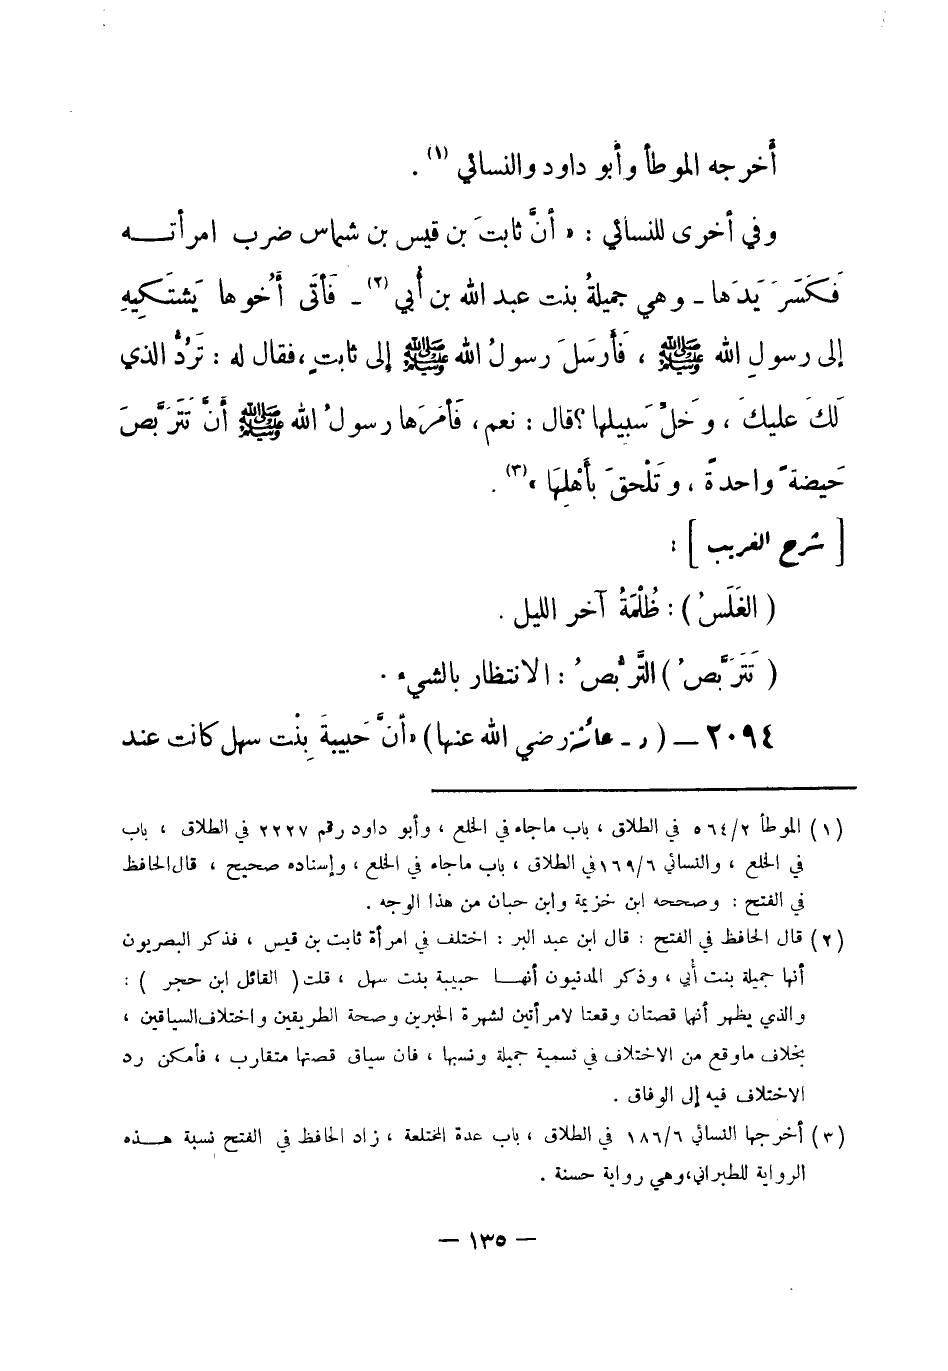 أخرجه الموطأ وأبو داود والنسائي (١) .
وفي أخرى للنسائي : « أنَّ ثابتَ بن قيس بن شماس ضرب امرأتـــه
فَكَسَرَ يَدَها ـ وهي جميلةُ بنت عبد الله بن أُبي (٢) ـ فَأتَى أَخُوها يَشتَكيهِ
إلى رسولِ الله ﷺ ، فَأَرسَلَ رسولُ الله ﷺ إلى ثابتٍ ،فقال له : تَرُدُّ الذي
لَكَ عليكَ ، وخَلِّ سَبيلها ؟قال : نعم، فَأمَرَها رسولُ الله ﷺ أَنَّ تَتَرَبَّصَ
حَيضةً واحدةً ، وتَلْحقَ بأَهْلِهَا » (٣) .
[ شرح الغريب ] :
( الغَلَسُ ) : ظُلْمَةُ آخر الليل .
( تَتَرَبَّصُ ) التَّرَبُّصُ : الانتظار بالشيء .
٢٠٩٤ — ( د ـ عائشة رضي الله عنها ) «أنَّ حَبيبةَ بِنْت سهل كانت عند
(١) الموطأ ٢/ ٥٦٤ في الطلاق ، باب ماجاء في الخلع ، وأبو داود رقم ٢٢٢٧ في الطلاق ، باب
في الخلع ، والنسائي ٦/ ١٦٩ في الطلاق ، باب ماجاء في الخلع ، وإسناده صحيح ، قال الحافظ
في الفتح : وصححه ابن خزيمة وابن حبان من هذا الوجه .
(٢) قال الحافظ في الفتح : قال ابن عبد البر : اختلف في امرأة ثابت بن قيس ، فذكر البصريون
أنها جميلة بنت أُبي ، وذكر المدنيون أنهـــا حبيبة بنت سهل ، قلت ( القائل ابن حجر ) :
والذي يظهر أنها قصتان وقعتا لامرأتين لشهرة الخبرين وصحة الطريقين واختلاف السياقين ،
بخلاف ماوقع من الاختلاف في تسمية جميلة ونسبها ، فان سياق قصتها متقارب ، فأمكن رد
الاختلاف فيه إلى الوفاق .
(٣) أخرجها النسائي ٦/ ١٨٦ في الطلاق ، باب عدة المختلعة ، زاد الحافظ في الفتح نسبة هـــذه
الرواية للطبراني،وهي رواية حسنة .
— ١٣٥ —